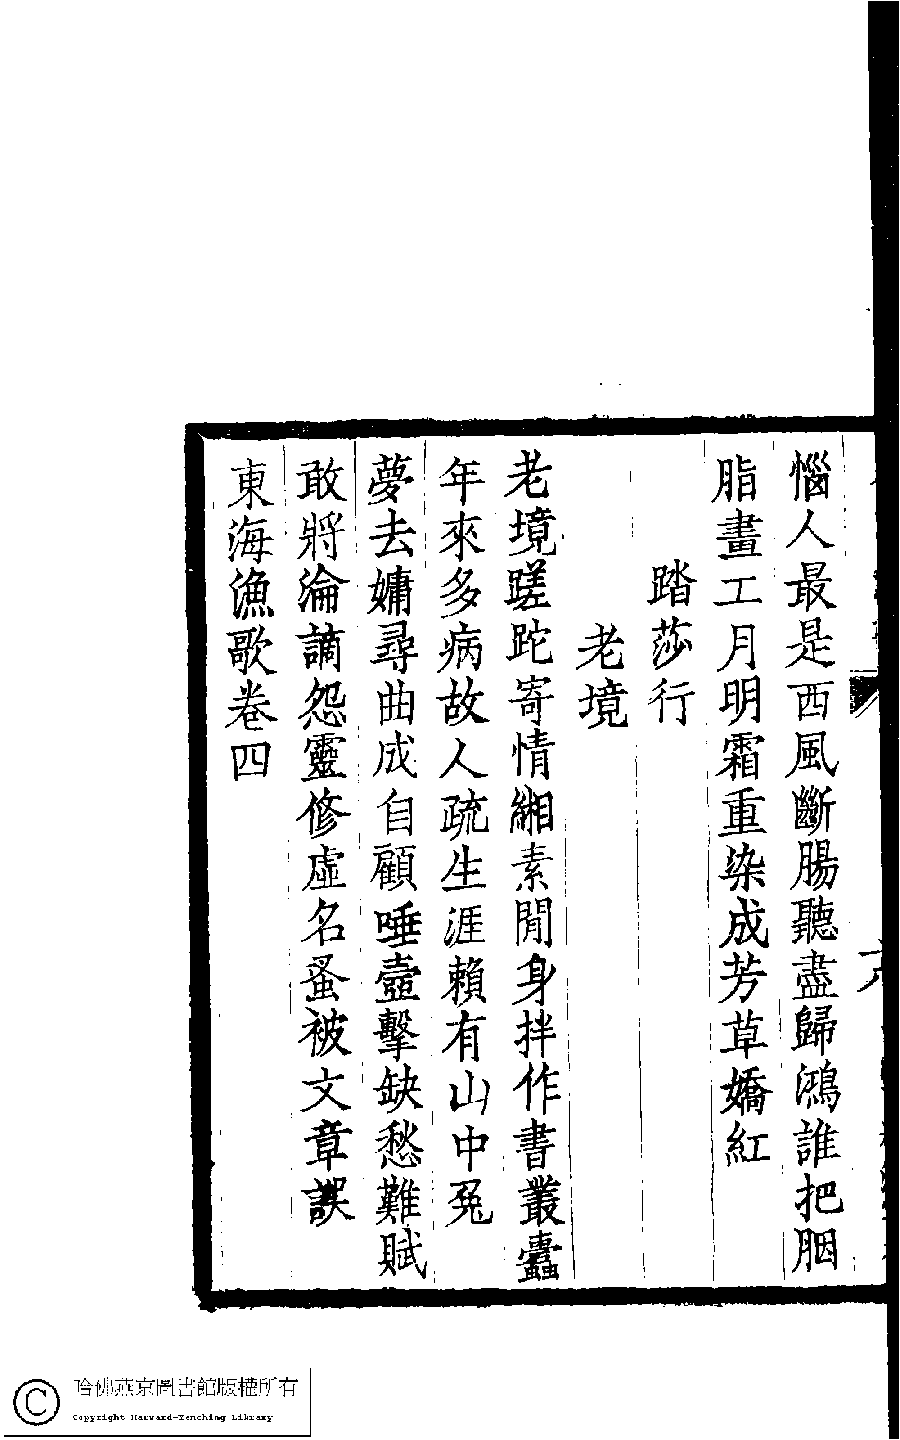 惱人最是西風斷腸聽盡歸鴻誰把胭
脂畫工月明霜重染成芳草嬌紅
踏莎行
老境
老境蹉跎寄情緗素閒身拌作書叢蠹
年來多病故人疏生涯賴有山中兔
夢去嫞尋曲成自顧唾壺擊缺愁難賦
敢將淪謫怨靈修虛名蚤被文章誤
東海漁歌卷四
哈佛燕京圖書館版權所有
Copyright Harvard-Yenching Library